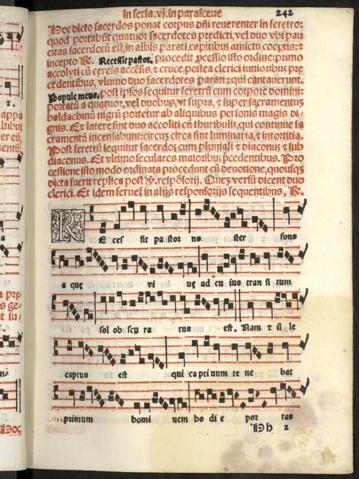 In feria .vj. in parasceue 242
Hoc dicto sacerdos ponat corpus dñi reuerenter in feretro:
quod portabũt quatuor sacerdotes predicti, vel duo vbi pau
citas sacerdotũ est, in albis parati, capitibus amictu coopertis: ⁊
incepto ℟. Recessit pastor, procedit p̱cessio isto ordine: primo
accolyti cũ cereis accẽsis, ⁊ cruce, postea clerici iunioribus pre
cedentibus, vltimo duo sacerdotes parati: qui cantauerunt.
Popule meus, post ipsos sequitur feretrũ cum corpore domini:
portatũ a quatuor, vel duobus vt supra, ⁊ super sacramentus
baldachinũ nigrũ portetur ab aliquibus personis magis di
gnis. Et latere sint duo accoliti cũ thuribulis, qui continue sa
cramentũ incensabunt: circũ circa sint luminaria, ⁊ intortitia.
Post feretrũ sequitur sacerdos cum pluuiali ⁊ diaconus ⁊ sub
diaconus. Et vltimo seculares maioribus p̱cedentibus. Pro
cessione isto modo ordinata procedunt cũ deuotione, quousqȝ
dicta fuerit replica post ℣. respõsorij. Quez versũ dicent duo
clerici. Et idem seruet in alijs responsorijs sequentibus, ℟.
R E ces sit pa stor no ster fons
a que vi ue ad cu ius tran si tum
sol ob scu ra tus est. Nam ⁊ il le
captus est qui ca pti uum te ne bat
primum homi nem ho di e por tas
Hh 2